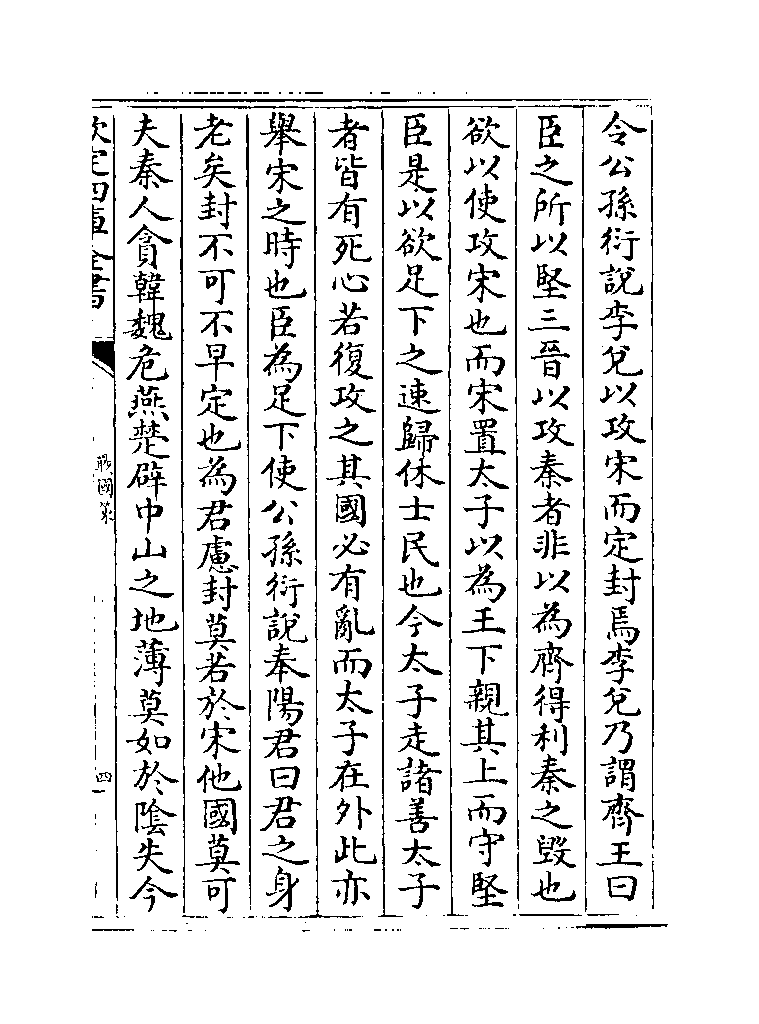 令公孫衍說李兌以攻宋而定封焉李兌乃謂齊王曰
臣之所以堅三晉以攻秦者非以為齊得利秦之毀也
欲以使攻宋也而宋置太子以為王下親其上而守堅
臣是以欲足下之速歸休士民也今太子走諸善太子
者皆有死心若復攻之其國必有亂而太子在外此亦
舉宋之時也臣為足下使公孫衍說奉陽君曰君之身
老矣封不可不早定也為君慮封莫若於宋他國莫可
夫秦人貪韓魏危燕楚辟中山之地薄莫如於陰失今
欽定四庫全書
戰國策
四